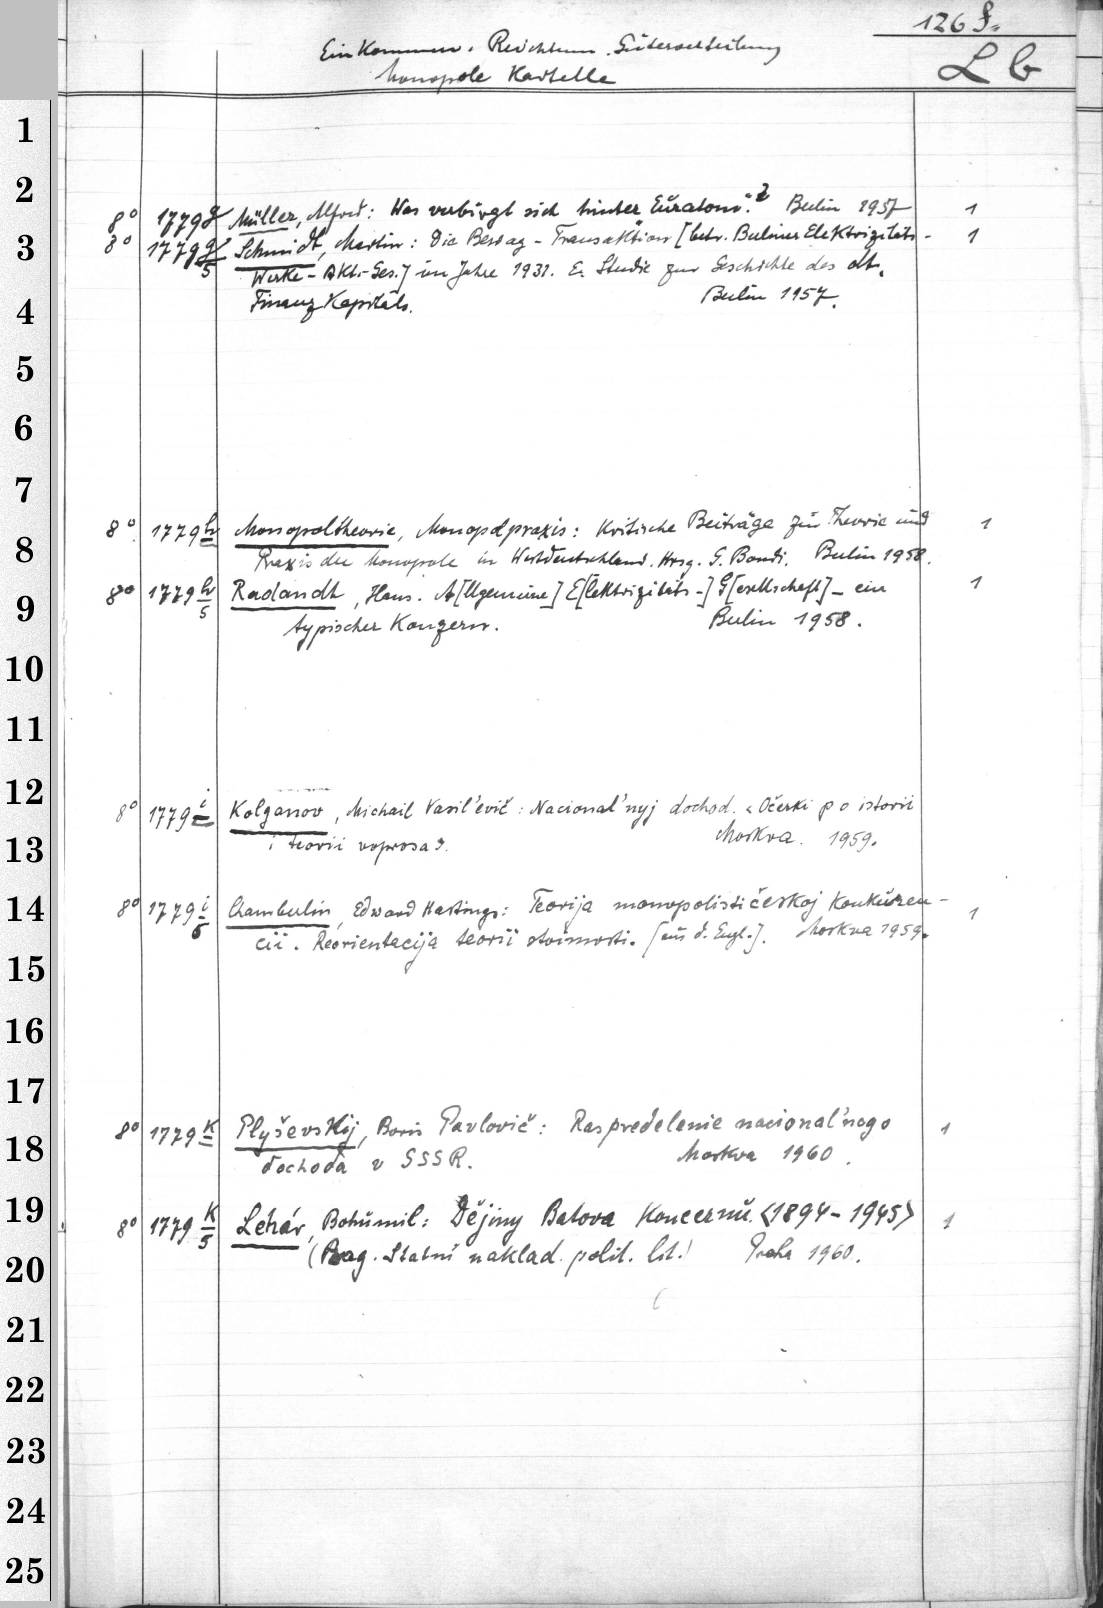 126 f.
Einkommen. Reichtum. Güterverteilung
L b
Monopole Kartelle
1
2
8° 1779g Müller, Alfred: Was verbirgt sich hinter Euratom? Berlin 1957 1
3
8° 1779g/5 Schmidt, Martin: Die Bewag-Transaktion [betr. Berliner Elektrizitäts- 1
Werke-Akt.-Ges.] im Jahre 1931. E. Studie zur Geschichte des dt.
4
Finanzkapitals. Berlin 1957.
5
6
7
8° 1779h Monopoltheorie, Monopolpraxis: Kritische Beiträge zur Theorie und 1
8
Praxis der Monopole in Westdeutschland. Hrsg. G. Bondi. Berlin 1958.
8° 1779h/5 Radandt, Hans. A[llgemeine] E[lektrizitäts-] G[esellschaft] - ein 1
9
typischer Konzern. Berlin 1958.
10
11
12
8° 1779i Kolganov, Michail Vasil'evič: Nacional'nyj dochod. <Očerki po istorii
13
i teorii voprosa>. Moskva. 1959.
14
8° 1779i/5 Chamberlin, Edward Hastings: Teorija monopolističeskoj konkuren- 1
cii. Reorientacija teorii stoimosti. [aus d. Engl.]. Moskva 1959.
15
16
17
8° 1779k Plyševskij, Boris Pavlovič: Raspredelenie nacional'nogo 1
18
dochoda v SSSR. Moskva 1960.
19
8° 1779k/5 Lehár, Bohumil: Dějiny Baťova koncernu. <1894-1945> 1
20
(Prag. Statní naklad. polit. lit.) Praha 1960.
21
22
23
24
25